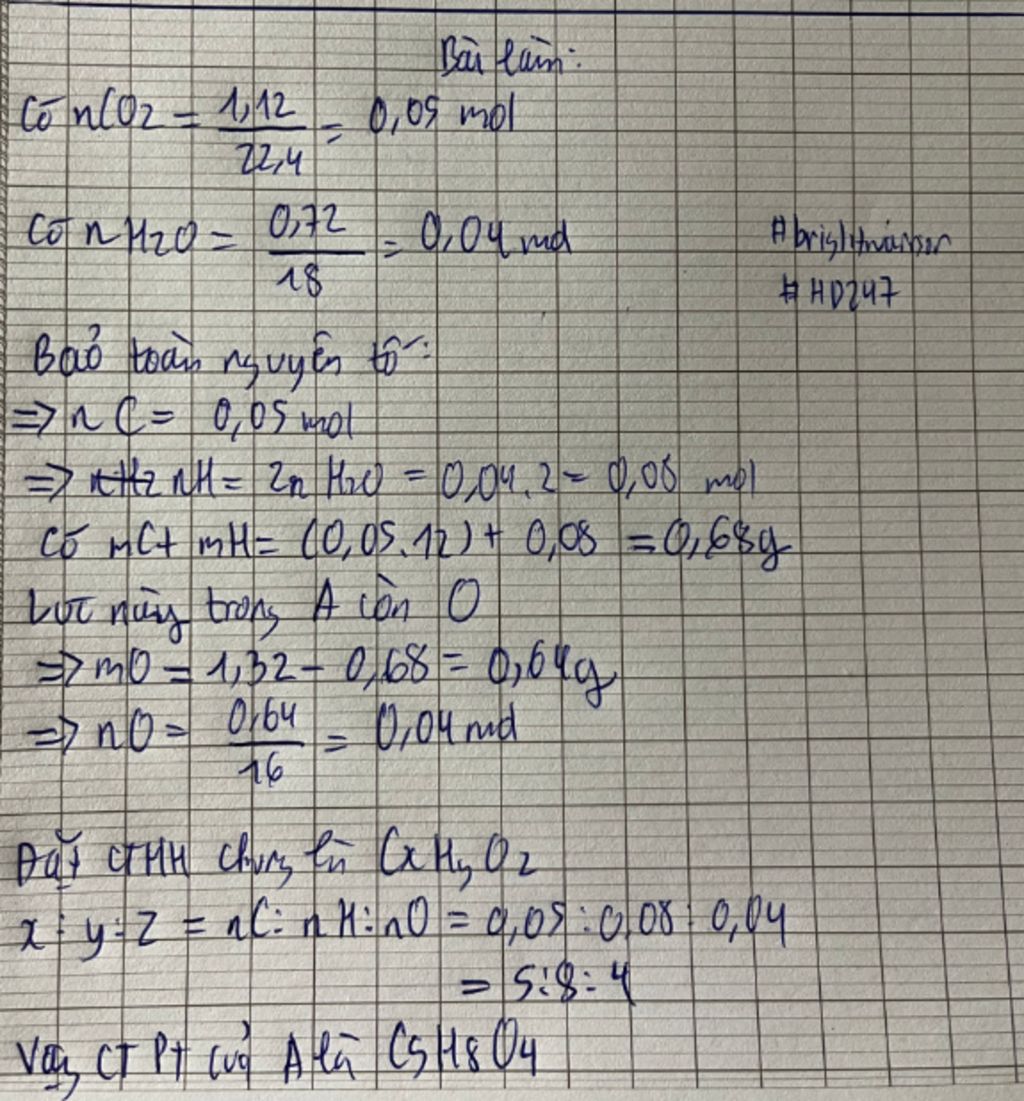 Bài làm:
Có nCO2 = 1,12 / 22,4 = 0,05 mol
Có nH2O = 0,72 / 18 = 0,04 mol
#HD247
Bảo toàn nguyên tố:
=> nC = 0,05 mol
=> nH = 2nH2O = 0,04.2 = 0,08 mol
Có mC + mH = (0,05.12) + 0,08 = 0,68g
Lúc này trong A còn O
=> mO = 1,32 - 0,68 = 0,64g
=> nO = 0,64 / 16 = 0,04 mol
Đặt CTHH chung là CxHyOz
x : y : z = nC : nH : nO = 0,05 : 0,08 : 0,04
= 5 : 8 : 4
Vậy CTPT của A là C5H8O4